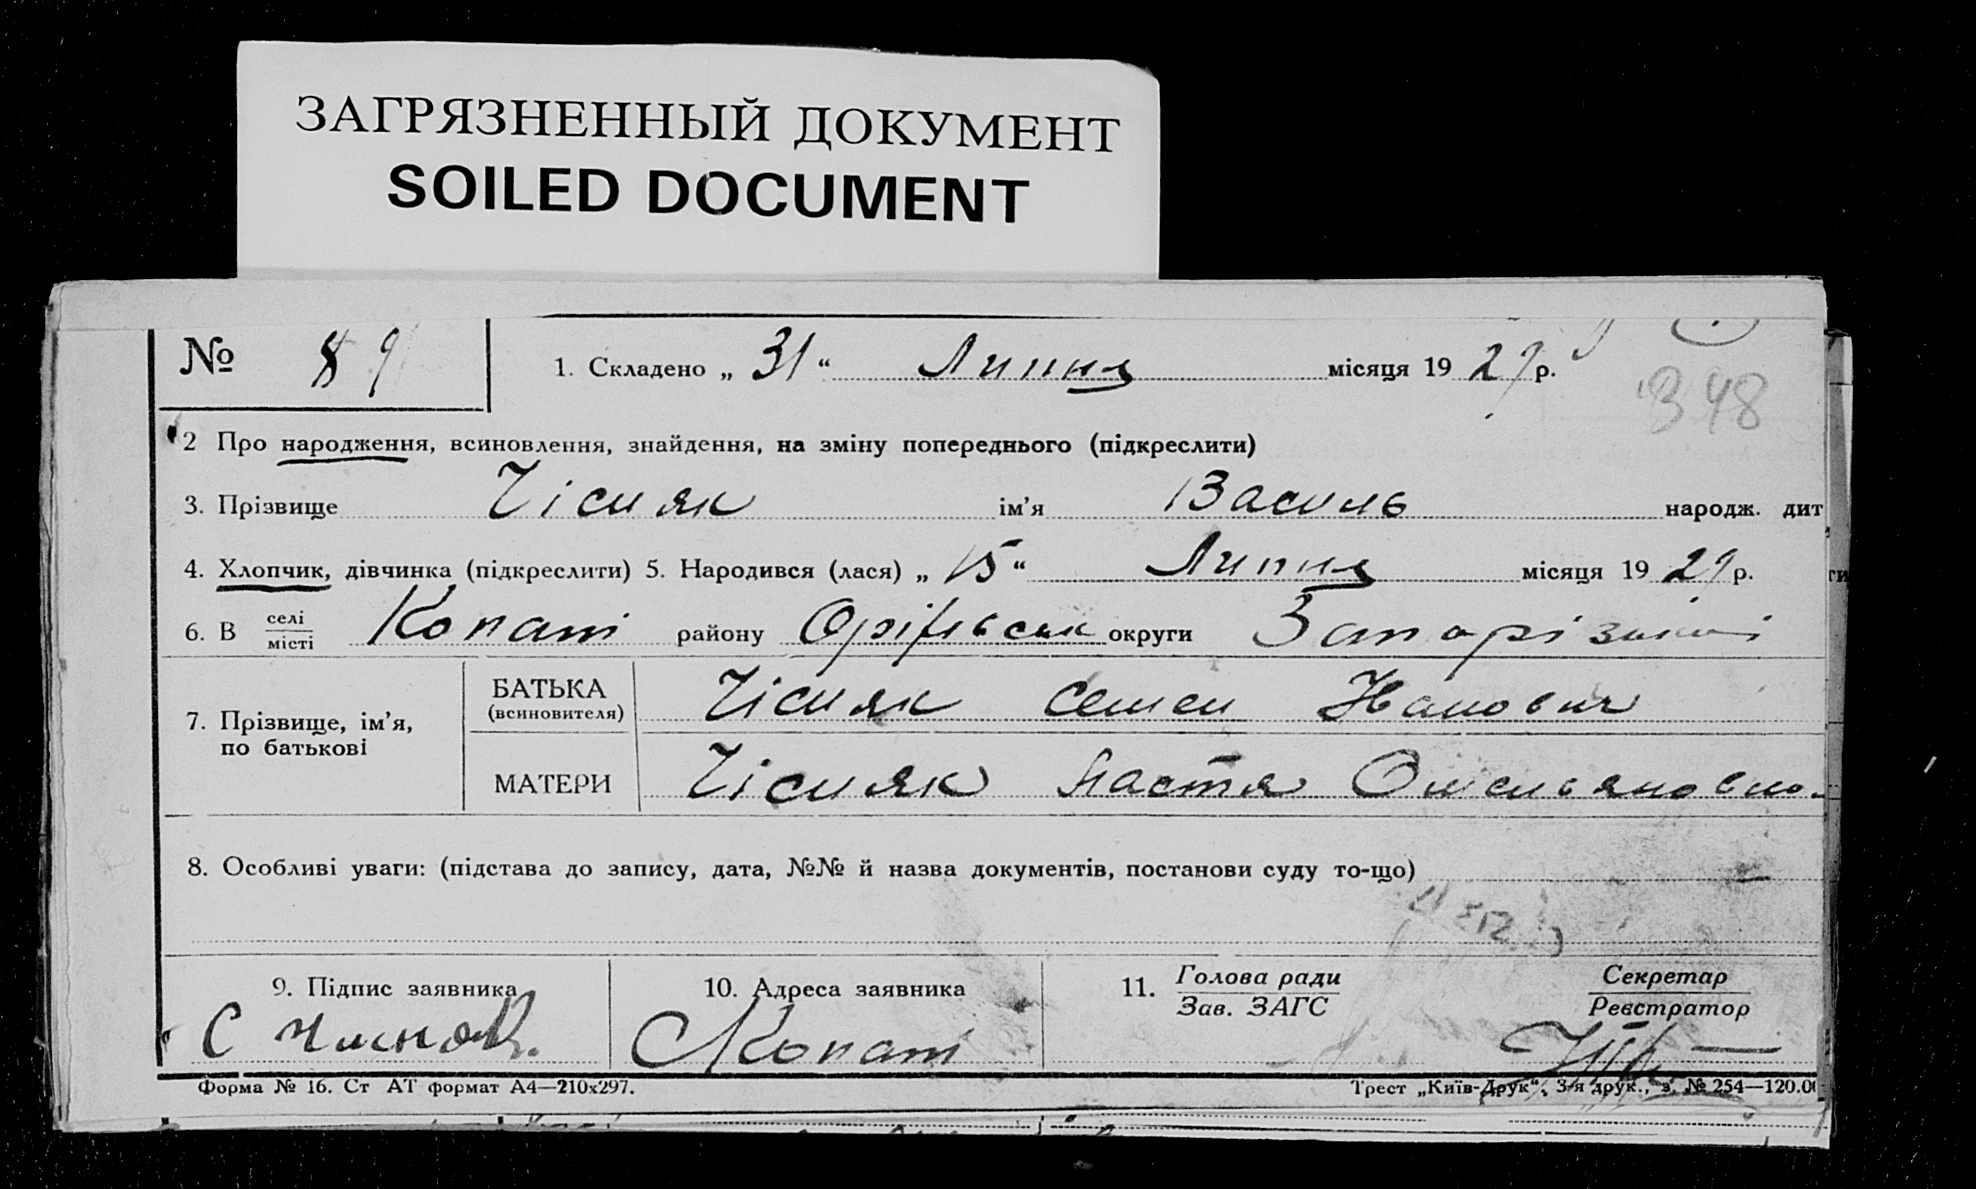 ЗАГРЯЗНЕННЫЙ ДОКУМЕНТ
SOILED DOCUMENT
№ 89
1. Складено „ 31 “ Липня місяця 19 29 р.
348
2 Про народження, всиновлення, знайдення, на зміну попереднього (підкреслити)
3. Прізвище Чісняк ім’я Василь народж. дит
4. Хлопчик, дівчинка (підкреслити) 5. Народився (лася) „ 15 “ Липня місяця 19 29 р.
6. В селі місті Копані району Оріхівськ округи Запорізької
7. Прізвище, ім’я, по батькові
БАТЬКА (всиновителя) Чісняк Семен
МАТЕРИ Чісняк Настя Омельяновна
8. Особливі уваги: (підстава до запису, дата, №№ й назва документів, постанови суду то-що)
9. Підпис заявника
10. Адреса заявника
11. Голова ради Зав. ЗАГС
Секретар Реєстратор
С
Копані
Форма № 16. Ст АТ формат А4—210х297.
Трест „Київ-Друк“, 3-я друк., з. № 254—120.0